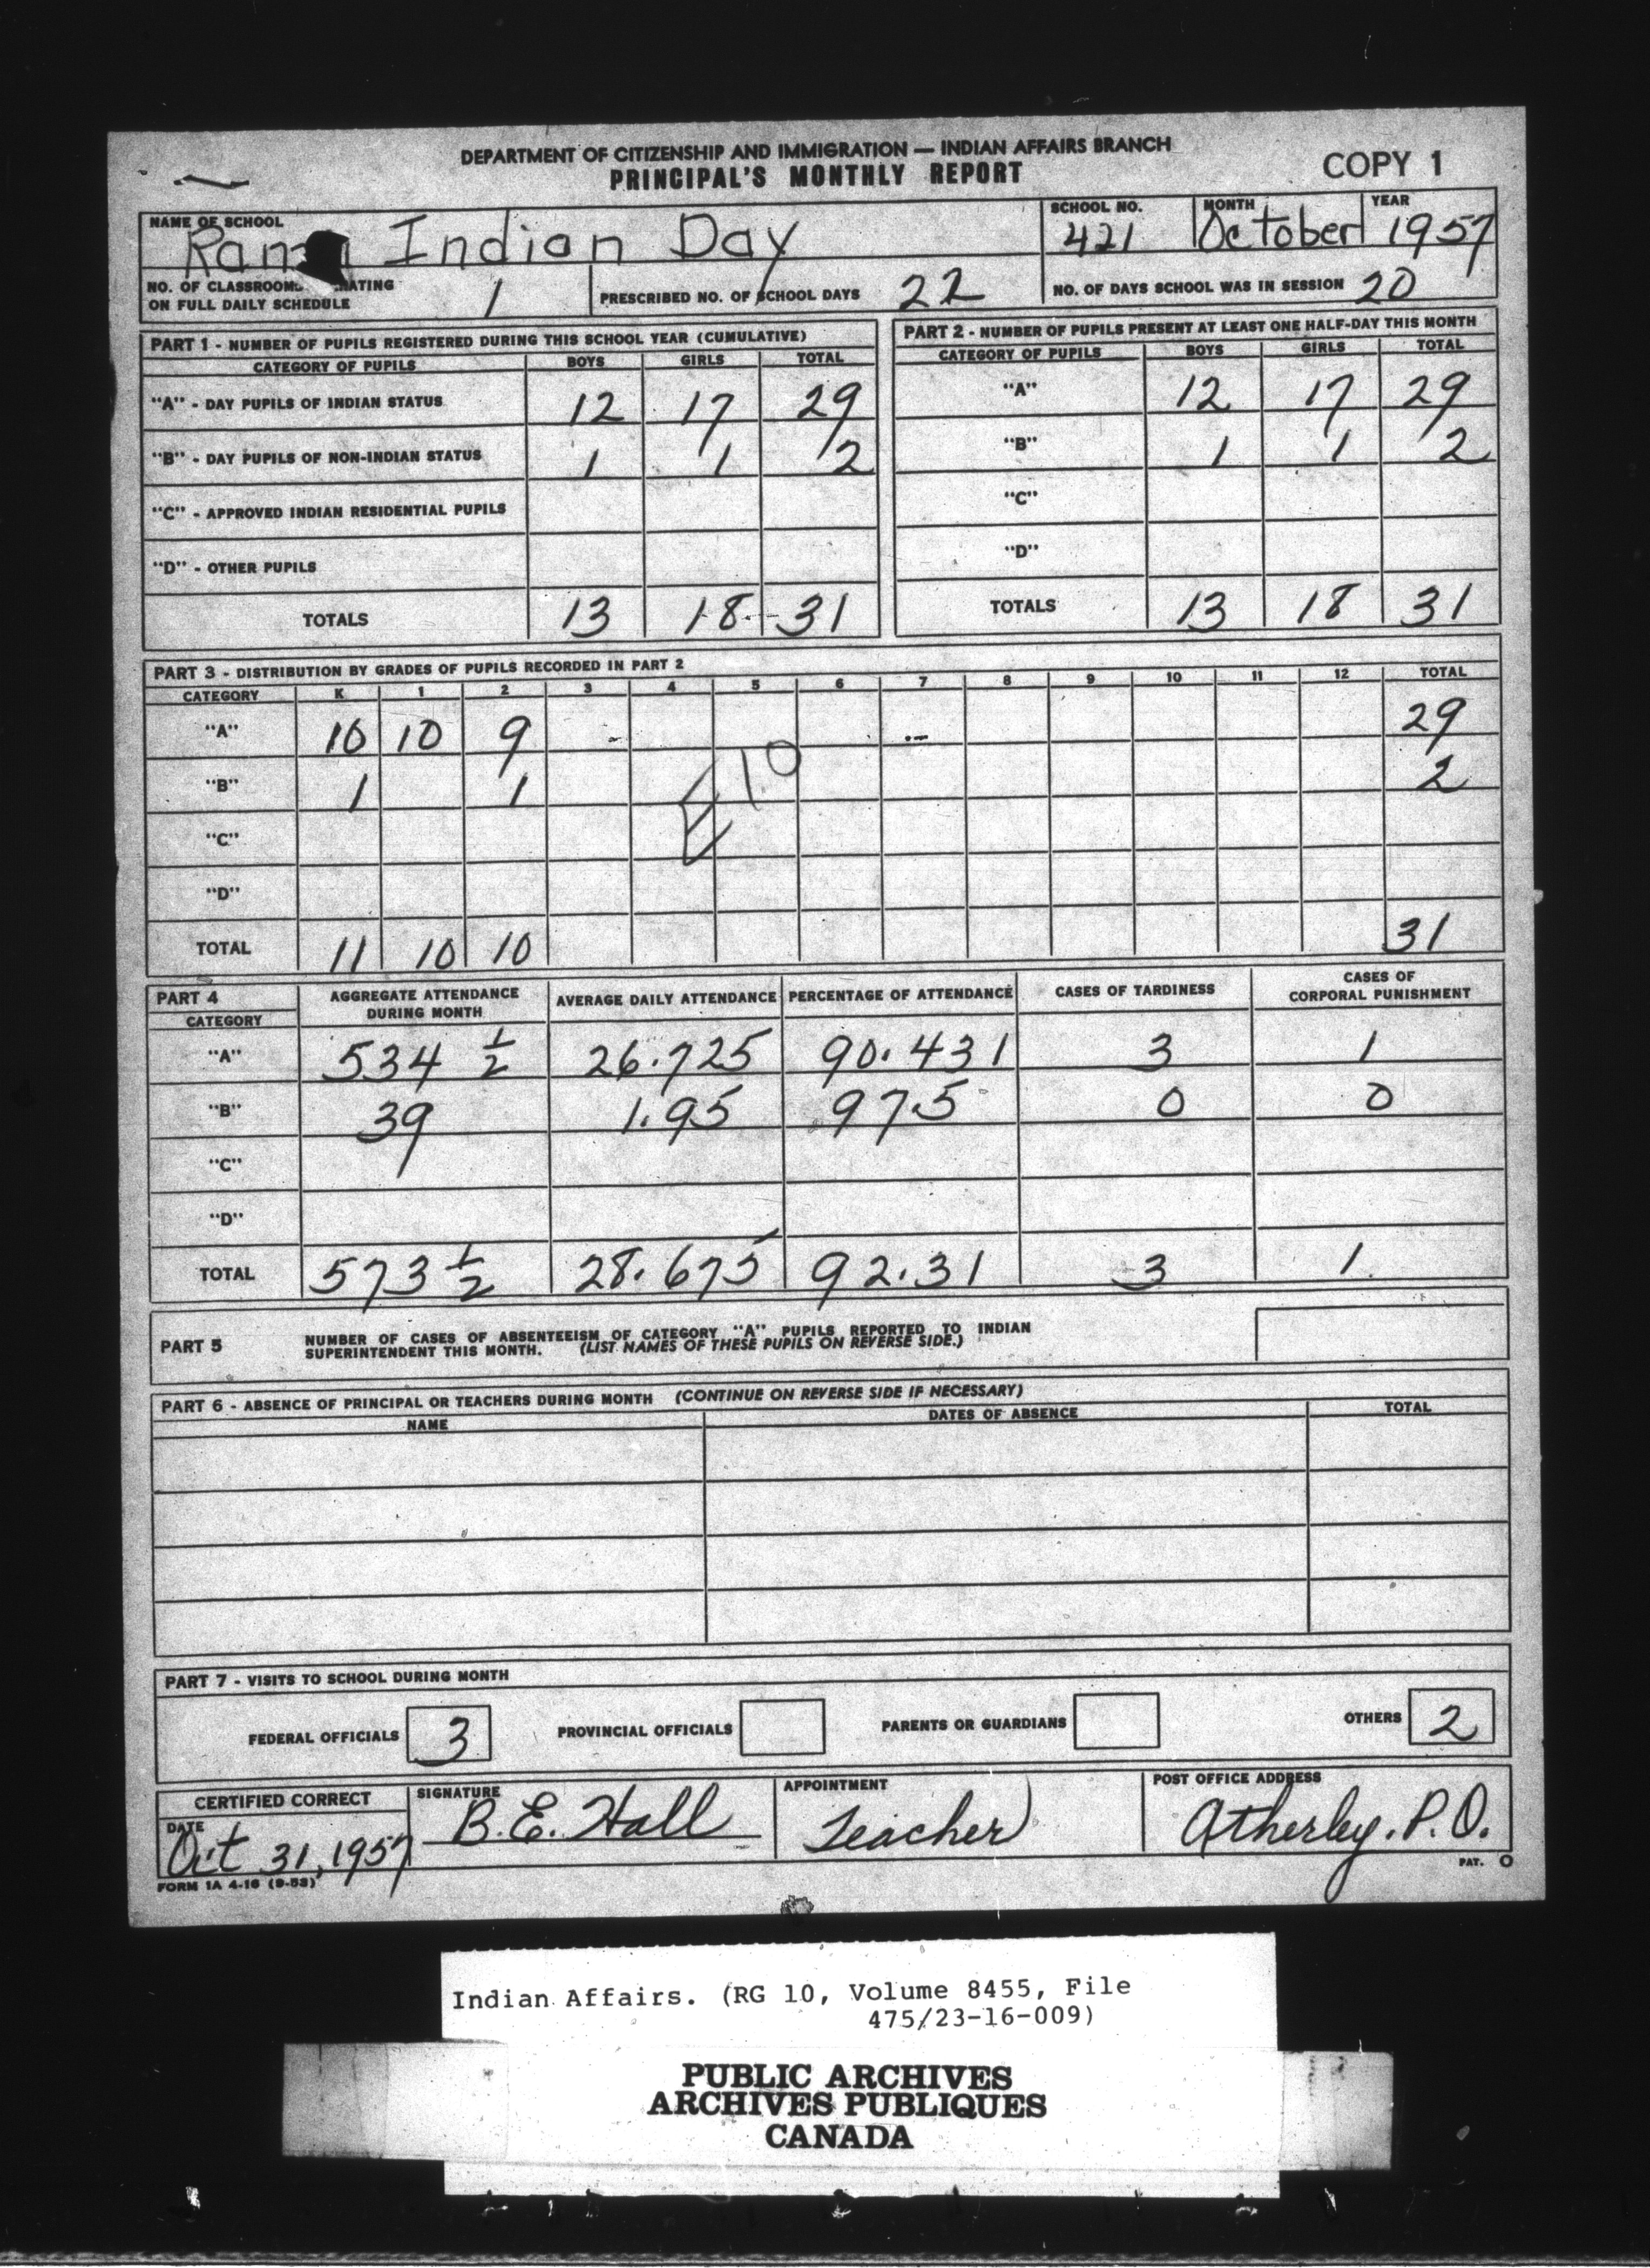 DEPARTMENT OF CITIZENSHIP AND IMMIGRATION — INDIAN AFFAIRS BRANCH
PRINCIPAL'S MONTHLY REPORT
COPY 1
NAME OF SCHOOL Indian Day
SCHOOL NO. 421
MONTH October
YEAR 1957
NO. OF CLASSROOMS
ON FULL DAILY SCHEDULE 1
PRESCRIBED NO. OF SCHOOL DAYS 22
NO. OF DAYS SCHOOL WAS IN SESSION 20
PART 1 - NUMBER OF PUPILS REGISTERED DURING THIS SCHOOL YEAR (CUMULATIVE)
CATEGORY OF PUPILS BOYS GIRLS TOTAL
"A" - DAY PUPILS OF INDIAN STATUS 12 17 29
"B" - DAY PUPILS OF NON-INDIAN STATUS 1 1 2
"C" - APPROVED INDIAN RESIDENTIAL PUPILS
"D" - OTHER PUPILS
TOTALS 13 18 31
PART 2 - NUMBER OF PUPILS PRESENT AT LEAST ONE HALF-DAY THIS MONTH
CATEGORY OF PUPILS BOYS GIRLS TOTAL
"A" 12 17 29
"B" 1 1 2
"C"
"D"
TOTALS 13 18 31
PART 3 - DISTRIBUTION BY GRADES OF PUPILS RECORDED IN PART 2
CATEGORY K 1 2 3 4 5 6 7 8 9 10 11 12 TOTAL
"A" 10 10 9 29
"B" 1 1 2
10
"C"
"D"
TOTAL 11 10 10 31
PART 4
CATEGORY
AGGREGATE ATTENDANCE
DURING MONTH
AVERAGE DAILY ATTENDANCE
PERCENTAGE OF ATTENDANCE
CASES OF TARDINESS
CASES OF
CORPORAL PUNISHMENT
"A" 534 1/2 26.725 90.431 3 1
"B" 39 1.95 97.5 0 0
"C"
"D"
TOTAL 573 1/2 28.675 92.31 3 1
PART 5
NUMBER OF CASES OF ABSENTEEISM OF CATEGORY "A" PUPILS REPORTED TO INDIAN
SUPERINTENDENT THIS MONTH. (LIST NAMES OF THESE PUPILS ON REVERSE SIDE.)
PART 6 - ABSENCE OF PRINCIPAL OR TEACHERS DURING MONTH (CONTINUE ON REVERSE SIDE IF NECESSARY)
NAME DATES OF ABSENCE TOTAL
PART 7 - VISITS TO SCHOOL DURING MONTH
FEDERAL OFFICIALS 3 PROVINCIAL OFFICIALS PARENTS OR GUARDIANS OTHERS 2
CERTIFIED CORRECT
DATE
Oct 31, 1957
SIGNATURE
B. E. Hall
APPOINTMENT
Teacher
POST OFFICE ADDRESS
Atherley. P.O.
PAT. O
FORM 1A 4-16 (9-53)
Indian Affairs. (RG 10, Volume 8455, File
475/23-16-009)
PUBLIC ARCHIVES
ARCHIVES PUBLIQUES
CANADA